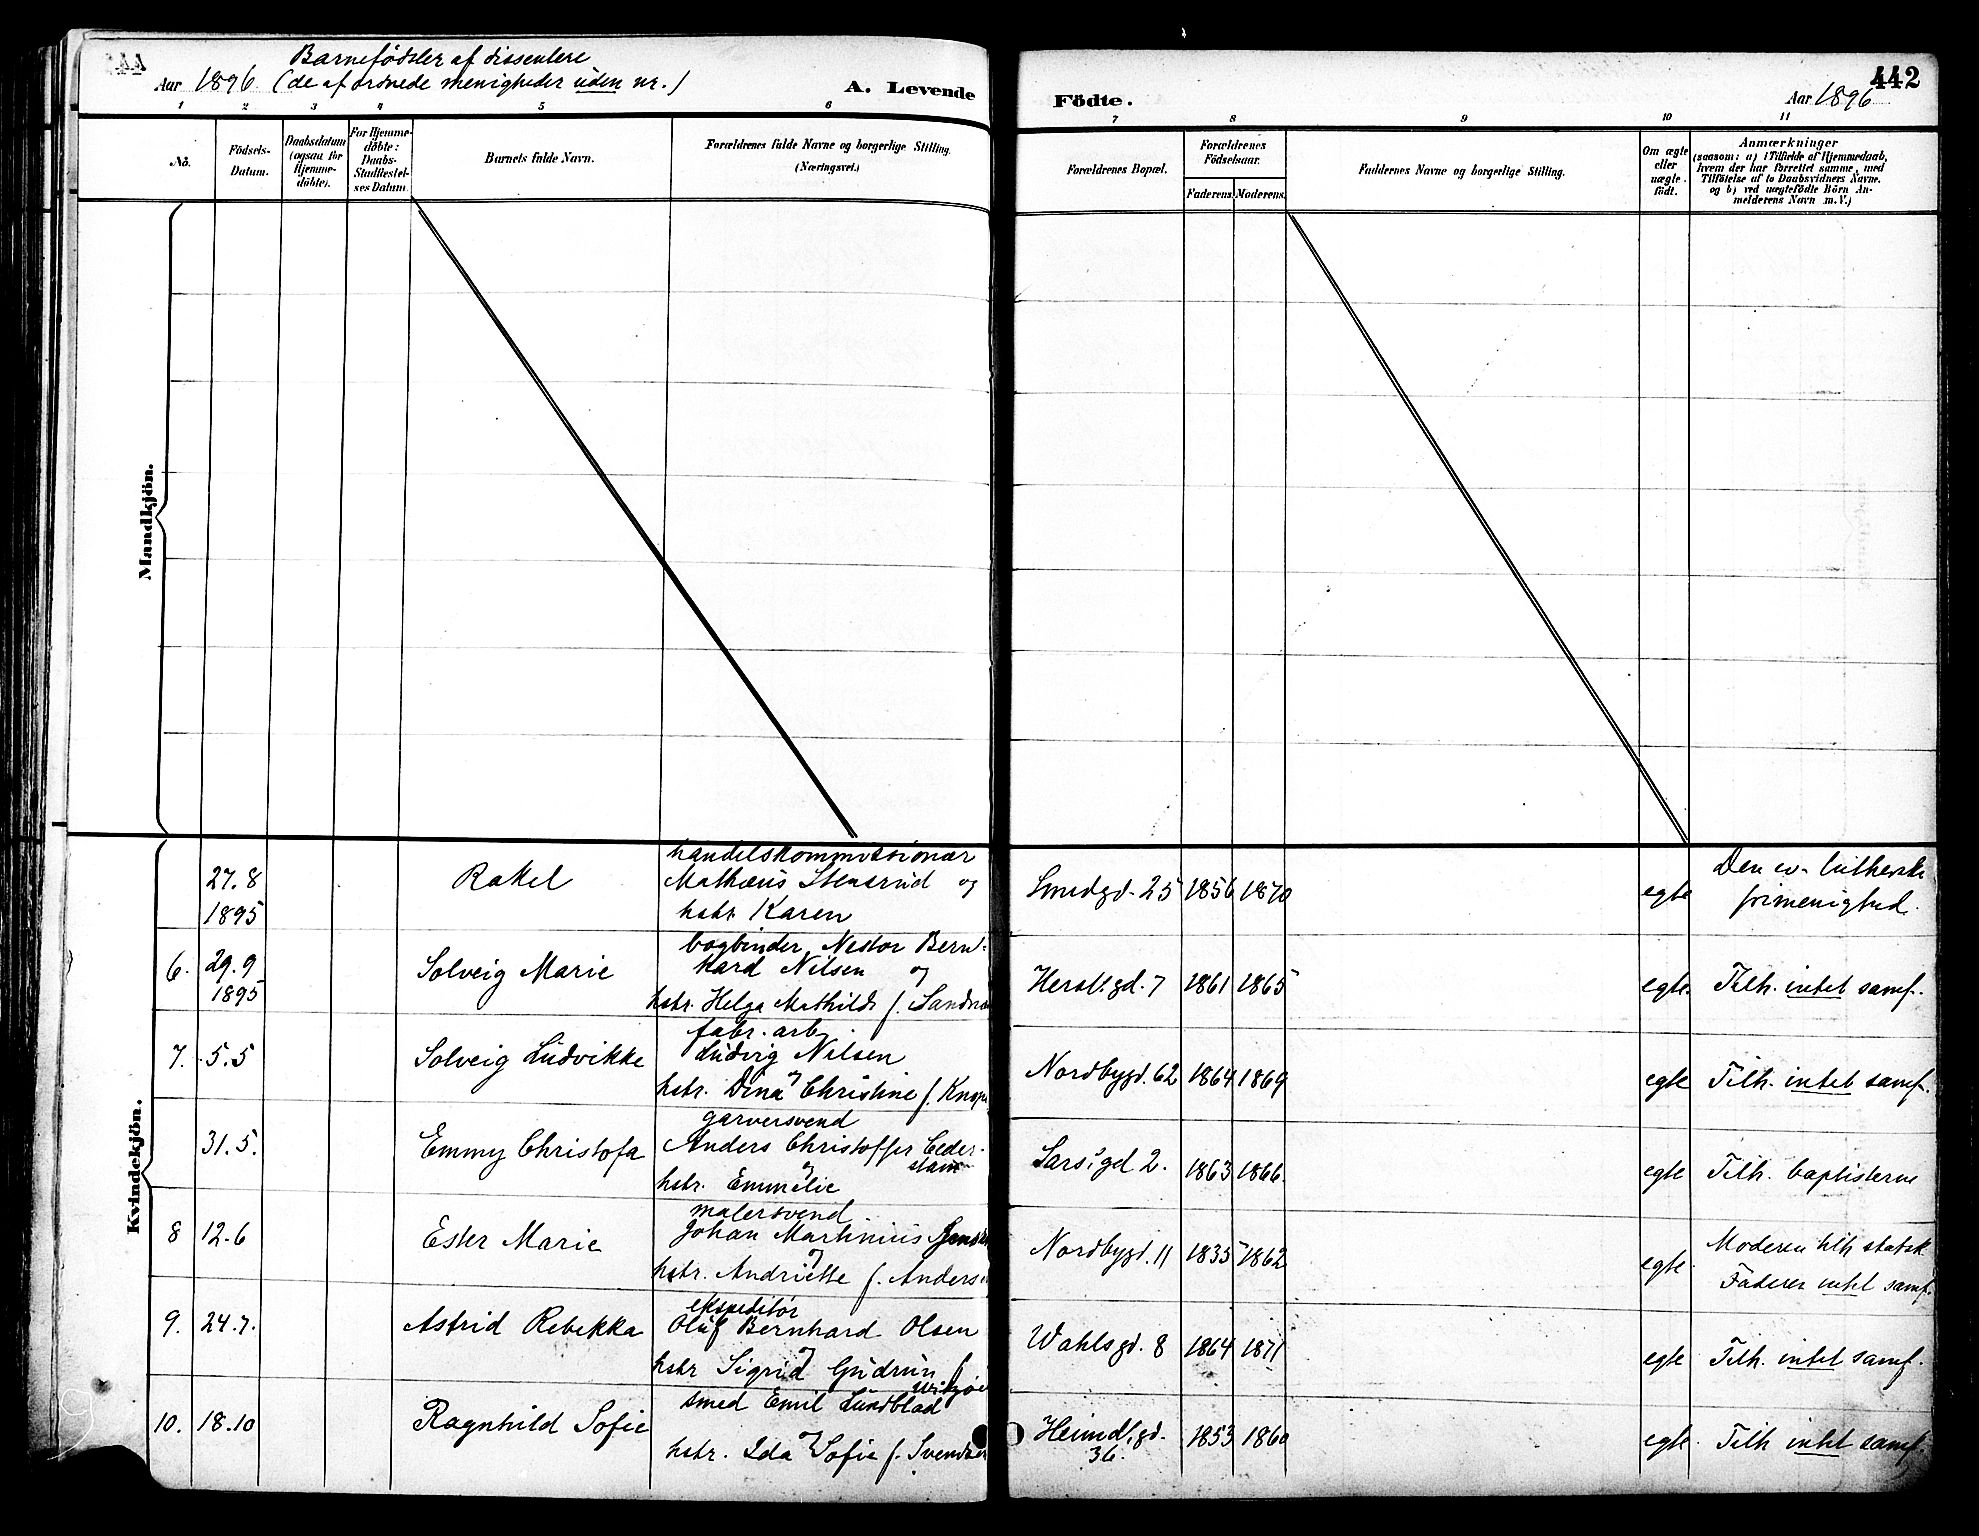 Barnefödsler af dissentere
Aar 1896. (de af ordnede menigheder uden nr.)
A. Levende
1 2 3 4 5 6
No.
Födsels-
Datum.
Daabsdatum
(ogsaa for
Hjemme-
döbte).
For Hjemme-
döbte:
Daabs-
Stadfæstel-
ses Datum.
Barnets fulde Navn.
Forældrenes fulde Navne og borgerlige Stilling.
(Næringsvei.)
Födte.
442
Aar 1896
7 8 9 10 11
Forældrenes Bopæl.
Forældrenes
Födselsaar.
Faderens. Moderens.
Faddernes Navne og borgerlige Stilling.
Om ægte
eller
uægte
födt.
Anmærkninger
(saasom: a) i Tilfælde af Hjemmedaab,
hvem der har forrettet samme, med
Tilföielse af to Daabsvidners Navne.
og b) ved uægtefödte Börn An-
melderens Navn m.V.)
Mandkjön.
Kvindekjön.
27.8
1895
Rakel
handelskommissionær
Mathæus Stensrud og
hstr. Karen
Smedgd. 25
1856 1870
egte
Den ev. lutherske
frimenighed.
6. 29.9
1895
Solveig Marie
bogbinder Nestor Bern-
hard Nilsen og
hstr. Helga Mathilde f.
7
1861 1865
egte.
Tilh. intet samf.
7. 5.5
Solveig Ludvikke
fabr. arb.
Ludvig Nilsen
og
hstr. Dina Christine f.
Nordbygd. 62
1864 1869
egte
Tilh. intet samf.
31.5.
Emmy Christofa
garversvend
Anders Christoffer Ceder-
stam
og
hstr. Emmelie
Sarsgd 2.
1863 1866.
egte
Tilh. baptisterne
8 12.6
Ester Marie
malersvend
Johan Martinius
og
hstr. Andriette f.
Nordbygd. 11
1835 1862
egte.
Moderen tilh statsk.
Faderen intet samf.
9. 24.7.
Astrid Rebekka
ekspeditör
Oluf Bernhard Olsen
og
hstr Sigrid Gudrun f
Wahlsgd. 8
1864 1871
egte
Tilh. intet samf.
10. 18.10
Ragnhild Sofie
smed Emil Lundblad
og
hstr. Ida Sofie f. Svendsen
Heimdl.gd.
36.
1853 1860
egte.
Tilh intet samf.